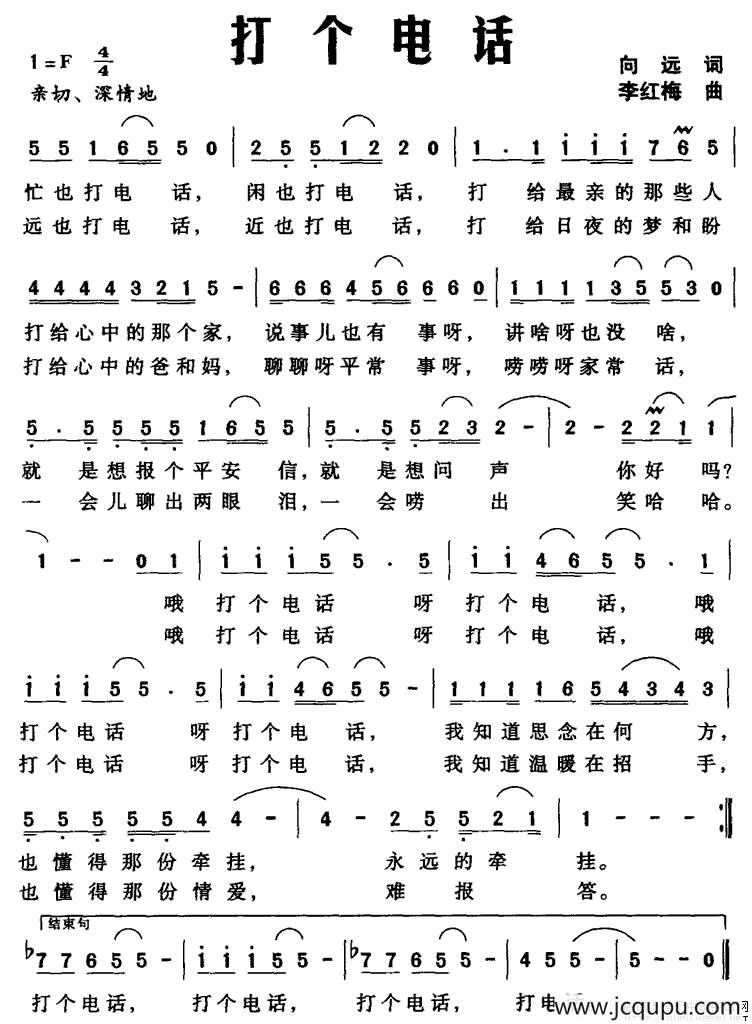 打个电话
1=F 4/4
向远 词
亲切、深情地
李红梅 曲
5 5 1 6 5 5 0 | 2 5 5 1 2 2 0 | 1 . 1 1 1 1 7 6 5
忙也打电话，闲也打电话，打给最亲的那些人
远也打电话，近也打电话，打给日夜的梦和盼
4 4 4 4 3 2 1 5 - | 6 6 6 4 5 6 6 6 0 | 1 1 1 1 3 5 5 3 0
打给心中的那个家，说事儿也有事呀，讲啥呀也没啥，
打给心中的爸和妈，聊聊呀平常事呀，唠唠呀家常话，
5 . 5 5 5 5 1 6 5 5 | 5 . 5 5 2 3 2 - | 2 - 2 2 1 1 |
就是想报个平安信，就是想问声你好吗？
一会儿聊出两眼泪，一会唠出笑哈哈。
1 - - 0 1 | 1 1 1 5 5 . 5 | 1 1 4 6 5 5 . 1 |
哦打个电话呀打个电话，哦
哦打个电话呀打个电话，哦
1 1 1 5 5 . 5 | 1 1 4 6 5 5 - | 1 1 1 1 6 5 4 3 4 3
打个电话呀打个电话，我知道思念在何方，
打个电话呀打个电话，我知道温暖在招手，
5 5 5 5 5 4 4 - | 4 - 2 5 5 2 1 | 1 - - - :|
也懂得那份牵挂，永远的牵挂。
也懂得那份情爱，难报答。
结束句
♭7 7 6 5 5 - | 1 1 1 5 5 - | ♭7 7 6 5 5 - | 4 5 5 - | 5 - - 0 |
打个电话，打个电话，打个电话，打电
www.jcqupu.com